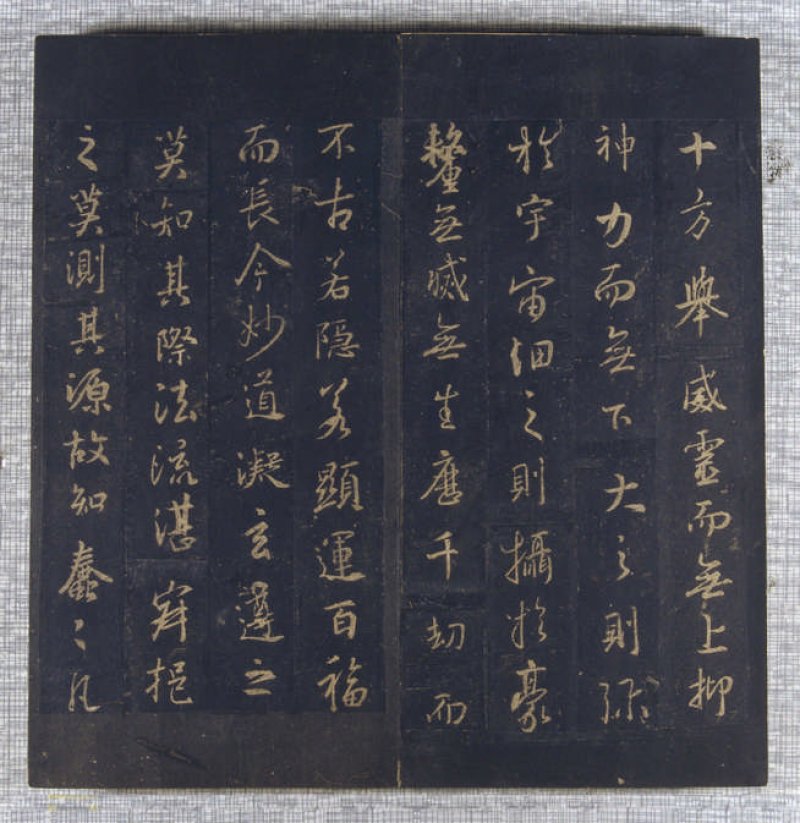 十方舉威靈而無上抑
神力而無下大之則彌
於宇宙細之則攝於豪
釐無滅無生歷千劫而
不古若隱若顯運百福
而長今妙道凝玄遵之
莫知其際法流湛寂挹
之莫測其源故知蠢〻凡